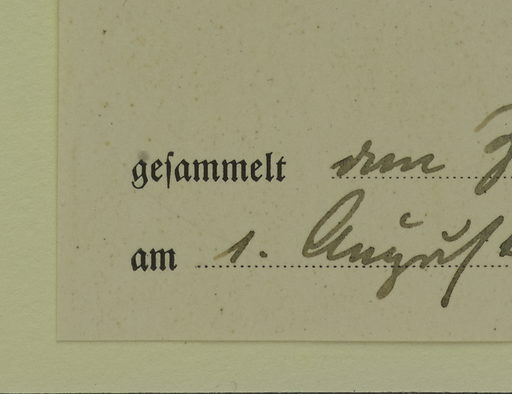 gesammelt
am 1. August